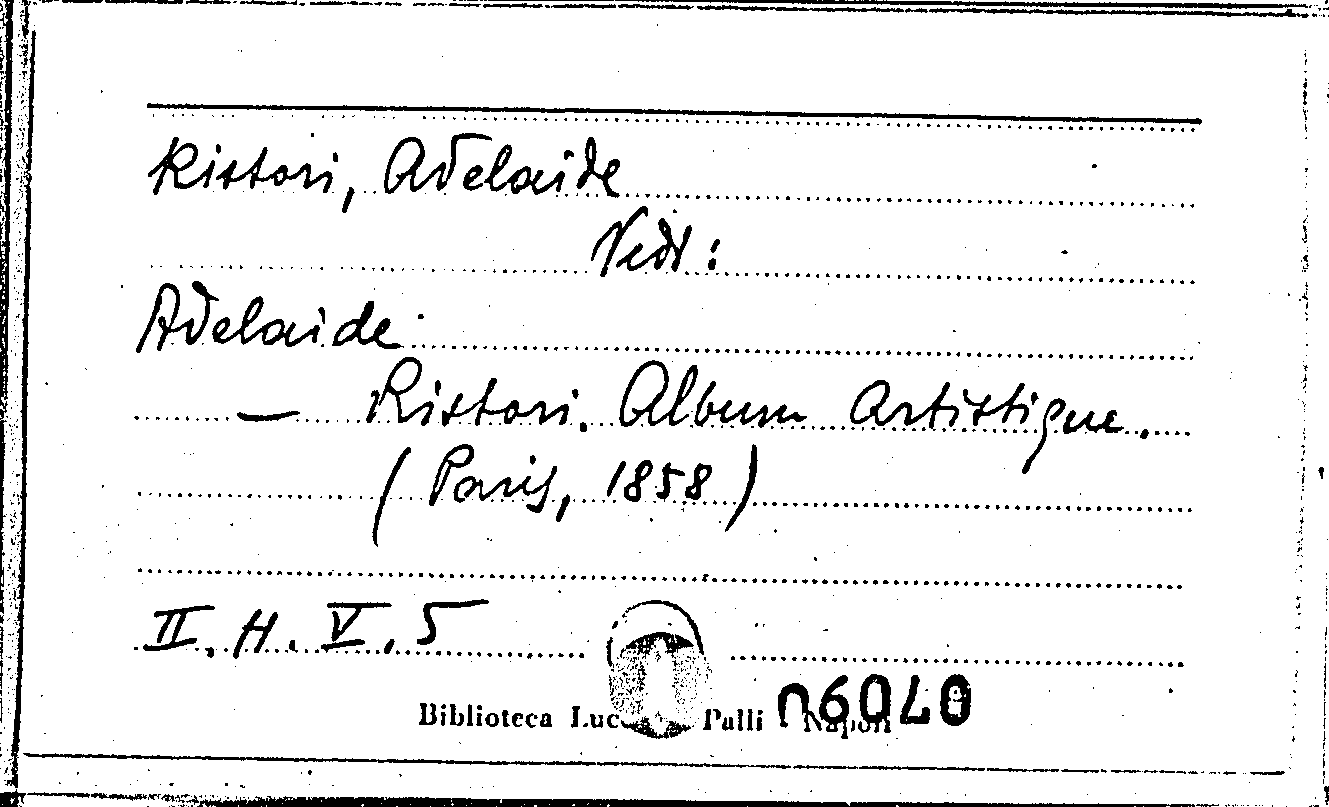 Ristori, Adelaide
Vedi:
Adelaide
— Ristori. Album artistique.
(Paris, 1858)
II. H. V. 5
Biblioteca Palli Napoli